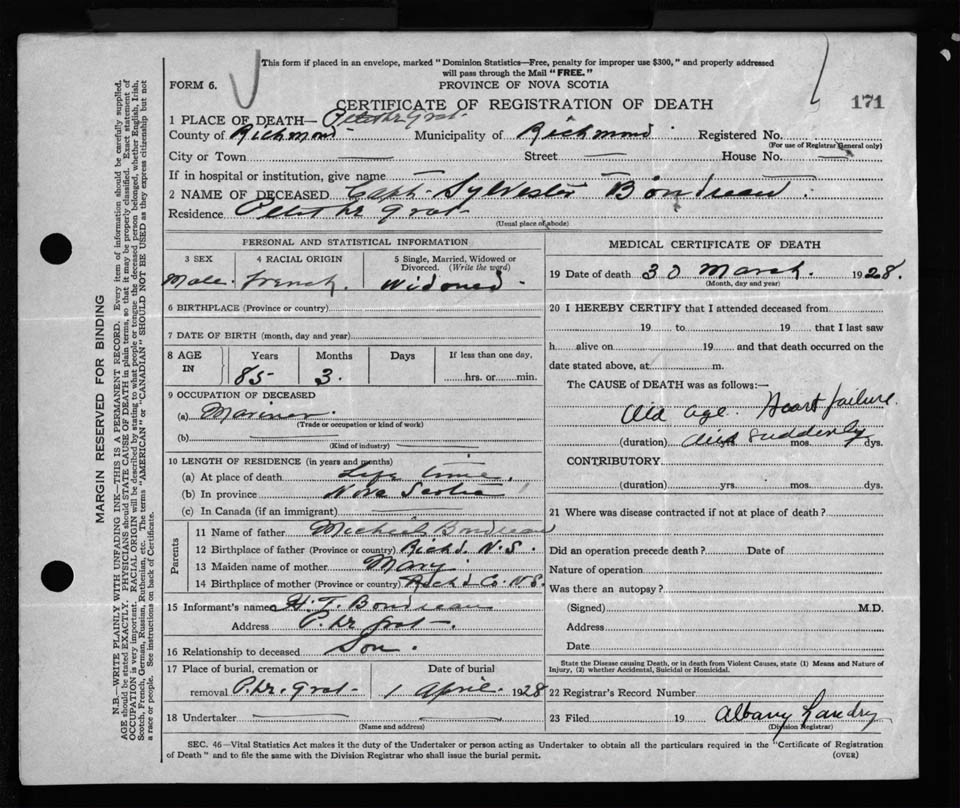 This form if placed in an envelope, marked "Dominion Statistics—Free, penalty for improper use $300," and properly addressed
will pass through the Mail "FREE."
FORM 6.
PROVINCE OF NOVA SCOTIA
CERTIFICATE OF REGISTRATION OF DEATH
171
1 PLACE OF DEATH—
County of Richmond Municipality of Richmond Registered No.
(For use of Registrar General only)
City or Town Street House No.
If in hospital or institution, give name
2 NAME OF DECEASED Capt. Sylvester Boudreau
Residence Petit de Grat
(Usual place of abode)
PERSONAL AND STATISTICAL INFORMATION
3 SEX 4 RACIAL ORIGIN 5 Single, Married, Widowed or
Divorced. (Write the word)
Male. French. Widowed.
6 BIRTHPLACE (Province or country)
7 DATE OF BIRTH (month, day and year)
8 AGE IN Years Months Days If less than one day,
85 3. hrs. or min.
9 OCCUPATION OF DECEASED
(a) Mariner.
(Trade or occupation or kind of work)
(b)
(Kind of industry)
10 LENGTH OF RESIDENCE (in years and months)
(a) At place of death Life time.
(b) In province Nova Scotia
(c) In Canada (if an immigrant)
Parents
11 Name of father Boudreau
12 Birthplace of father (Province or country) Rich'd. N.S.
13 Maiden name of mother Mary
14 Birthplace of mother (Province or country) Rich'd Co. N.S.
15 Informant's name H. T. Boudreau
Address P. de Grat.
16 Relationship to deceased Son.
17 Place of burial, cremation or Date of burial
removal P. de. Grat. 1 April. 1928
18 Undertaker
(Name and address)
MEDICAL CERTIFICATE OF DEATH
19 Date of death 30 March. 1928.
(Month, day and year)
20 I HEREBY CERTIFY that I attended deceased from
19 to 19 that I last saw
h alive on 19 and that death occurred on the
date stated above, at m.
The CAUSE of DEATH was as follows:—
Old age. Heart failure.
(duration) yrs. mos. dys.
died suddenly
CONTRIBUTORY
(duration) yrs. mos. dys.
21 Where was disease contracted if not at place of death?
Did an operation precede death? Date of
Nature of operation
Was there an autopsy?
(Signed) M.D.
Address
Date
State the Disease causing Death, or in death from Violent Causes, state (1) Means and Nature of
Injury, (2) whether Accidental, Suicidal or Homicidal.
22 Registrar's Record Number
23 Filed 19 Albany Landry
(Division Registrar)
SEC. 46—Vital Statistics Act makes it the duty of the Undertaker or person acting as Undertaker to obtain all the particulars required in the "Certificate of Registration
of Death" and to file the same with the Division Registrar who shall issue the burial permit.
(OVER)
MARGIN RESERVED FOR BINDING
N.B.—WRITE PLAINLY WITH UNFADING INK—THIS IS A PERMANENT RECORD. Every item of information should be carefully supplied.
AGE should be stated EXACTLY. PHYSICIANS should STATE CAUSE OF DEATH in plain terms, so that it may be properly classified. Exact statement of
OCCUPATION is very important. RACIAL ORIGIN will be described by stating to what people or tongue the deceased person belonged, whether English, Irish,
Scotch, French, German, Russian, Ruthenian, etc. The terms "AMERICAN" or "CANADIAN" SHOULD NOT BE USED as they express citizenship but not
a race or people. See instructions on back of Certificate.